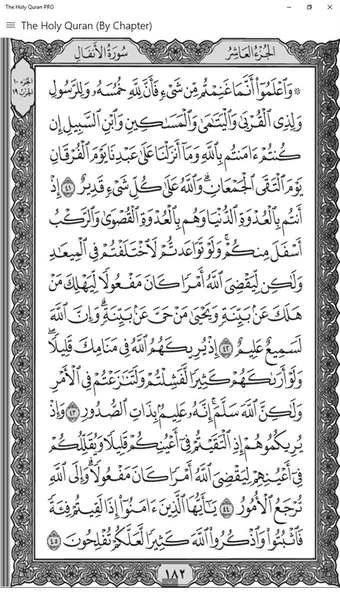 The Holy Quran PRO
The Holy Quran (By Chapter)
الجزء العاشر
سورة الأنفال
الجزء ١٠
الحزب ١٩
۞ وَٱعْلَمُوٓا۟ أَنَّمَا غَنِمْتُم مِّن شَىْءٍ فَأَنَّ لِلَّهِ خُمُسَهُۥ وَلِلرَّسُولِ
وَلِذِى ٱلْقُرْبَىٰ وَٱلْيَتَـٰمَىٰ وَٱلْمَسَـٰكِينِ وَٱبْنِ ٱلسَّبِيلِ إِن
كُنتُمْ ءَامَنتُم بِٱللَّهِ وَمَآ أَنزَلْنَا عَلَىٰ عَبْدِنَا يَوْمَ ٱلْفُرْقَانِ
يَوْمَ ٱلْتَقَى ٱلْجَمْعَانِ ۗ وَٱللَّهُ عَلَىٰ كُلِّ شَىْءٍ قَدِيرٌ ٤١ إِذْ
أَنتُم بِٱلْعُدْوَةِ ٱلدُّنْيَا وَهُم بِٱلْعُدْوَةِ ٱلْقُصْوَىٰ وَٱلرَّكْبُ
أَسْفَلَ مِنكُمْ ۚ وَلَوْ تَوَاعَدتُّمْ لَٱخْتَلَفْتُمْ فِى ٱلْمِيعَـٰدِ ۙ
وَلَـٰكِن لِّيَقْضِىَ ٱللَّهُ أَمْرًا كَانَ مَفْعُولًا لِّيَهْلِكَ مَنْ
هَلَكَ عَنۢ بَيِّنَةٍ وَيَحْيَىٰ مَنْ حَىَّ عَنۢ بَيِّنَةٍ ۗ وَإِنَّ ٱللَّهَ
لَسَمِيعٌ عَلِيمٌ ٤٢ إِذْ يُرِيكَهُمُ ٱللَّهُ فِى مَنَامِكَ قَلِيلًا ۖ
وَلَوْ أَرَىٰكَهُمْ كَثِيرًا لَّفَشِلْتُمْ وَلَتَنَـٰزَعْتُمْ فِى ٱلْأَمْرِ
وَلَـٰكِنَّ ٱللَّهَ سَلَّمَ ۗ إِنَّهُۥ عَلِيمٌۢ بِذَاتِ ٱلصُّدُورِ ٤٣ وَإِذْ
يُرِيكُمُوهُمْ إِذِ ٱلْتَقَيْتُمْ فِىٓ أَعْيُنِكُمْ قَلِيلًا وَيُقَلِّلُكُمْ
فِىٓ أَعْيُنِهِمْ لِيَقْضِىَ ٱللَّهُ أَمْرًا كَانَ مَفْعُولًا ۗ وَإِلَى ٱللَّهِ
تُرْجَعُ ٱلْأُمُورُ ٤٤ يَـٰٓأَيُّهَا ٱلَّذِينَ ءَامَنُوٓا۟ إِذَا لَقِيتُمْ فِئَةً
فَٱثْبُتُوا۟ وَٱذْكُرُوا۟ ٱللَّهَ كَثِيرًا لَّعَلَّكُمْ تُفْلِحُونَ ٤٥
١٨٢